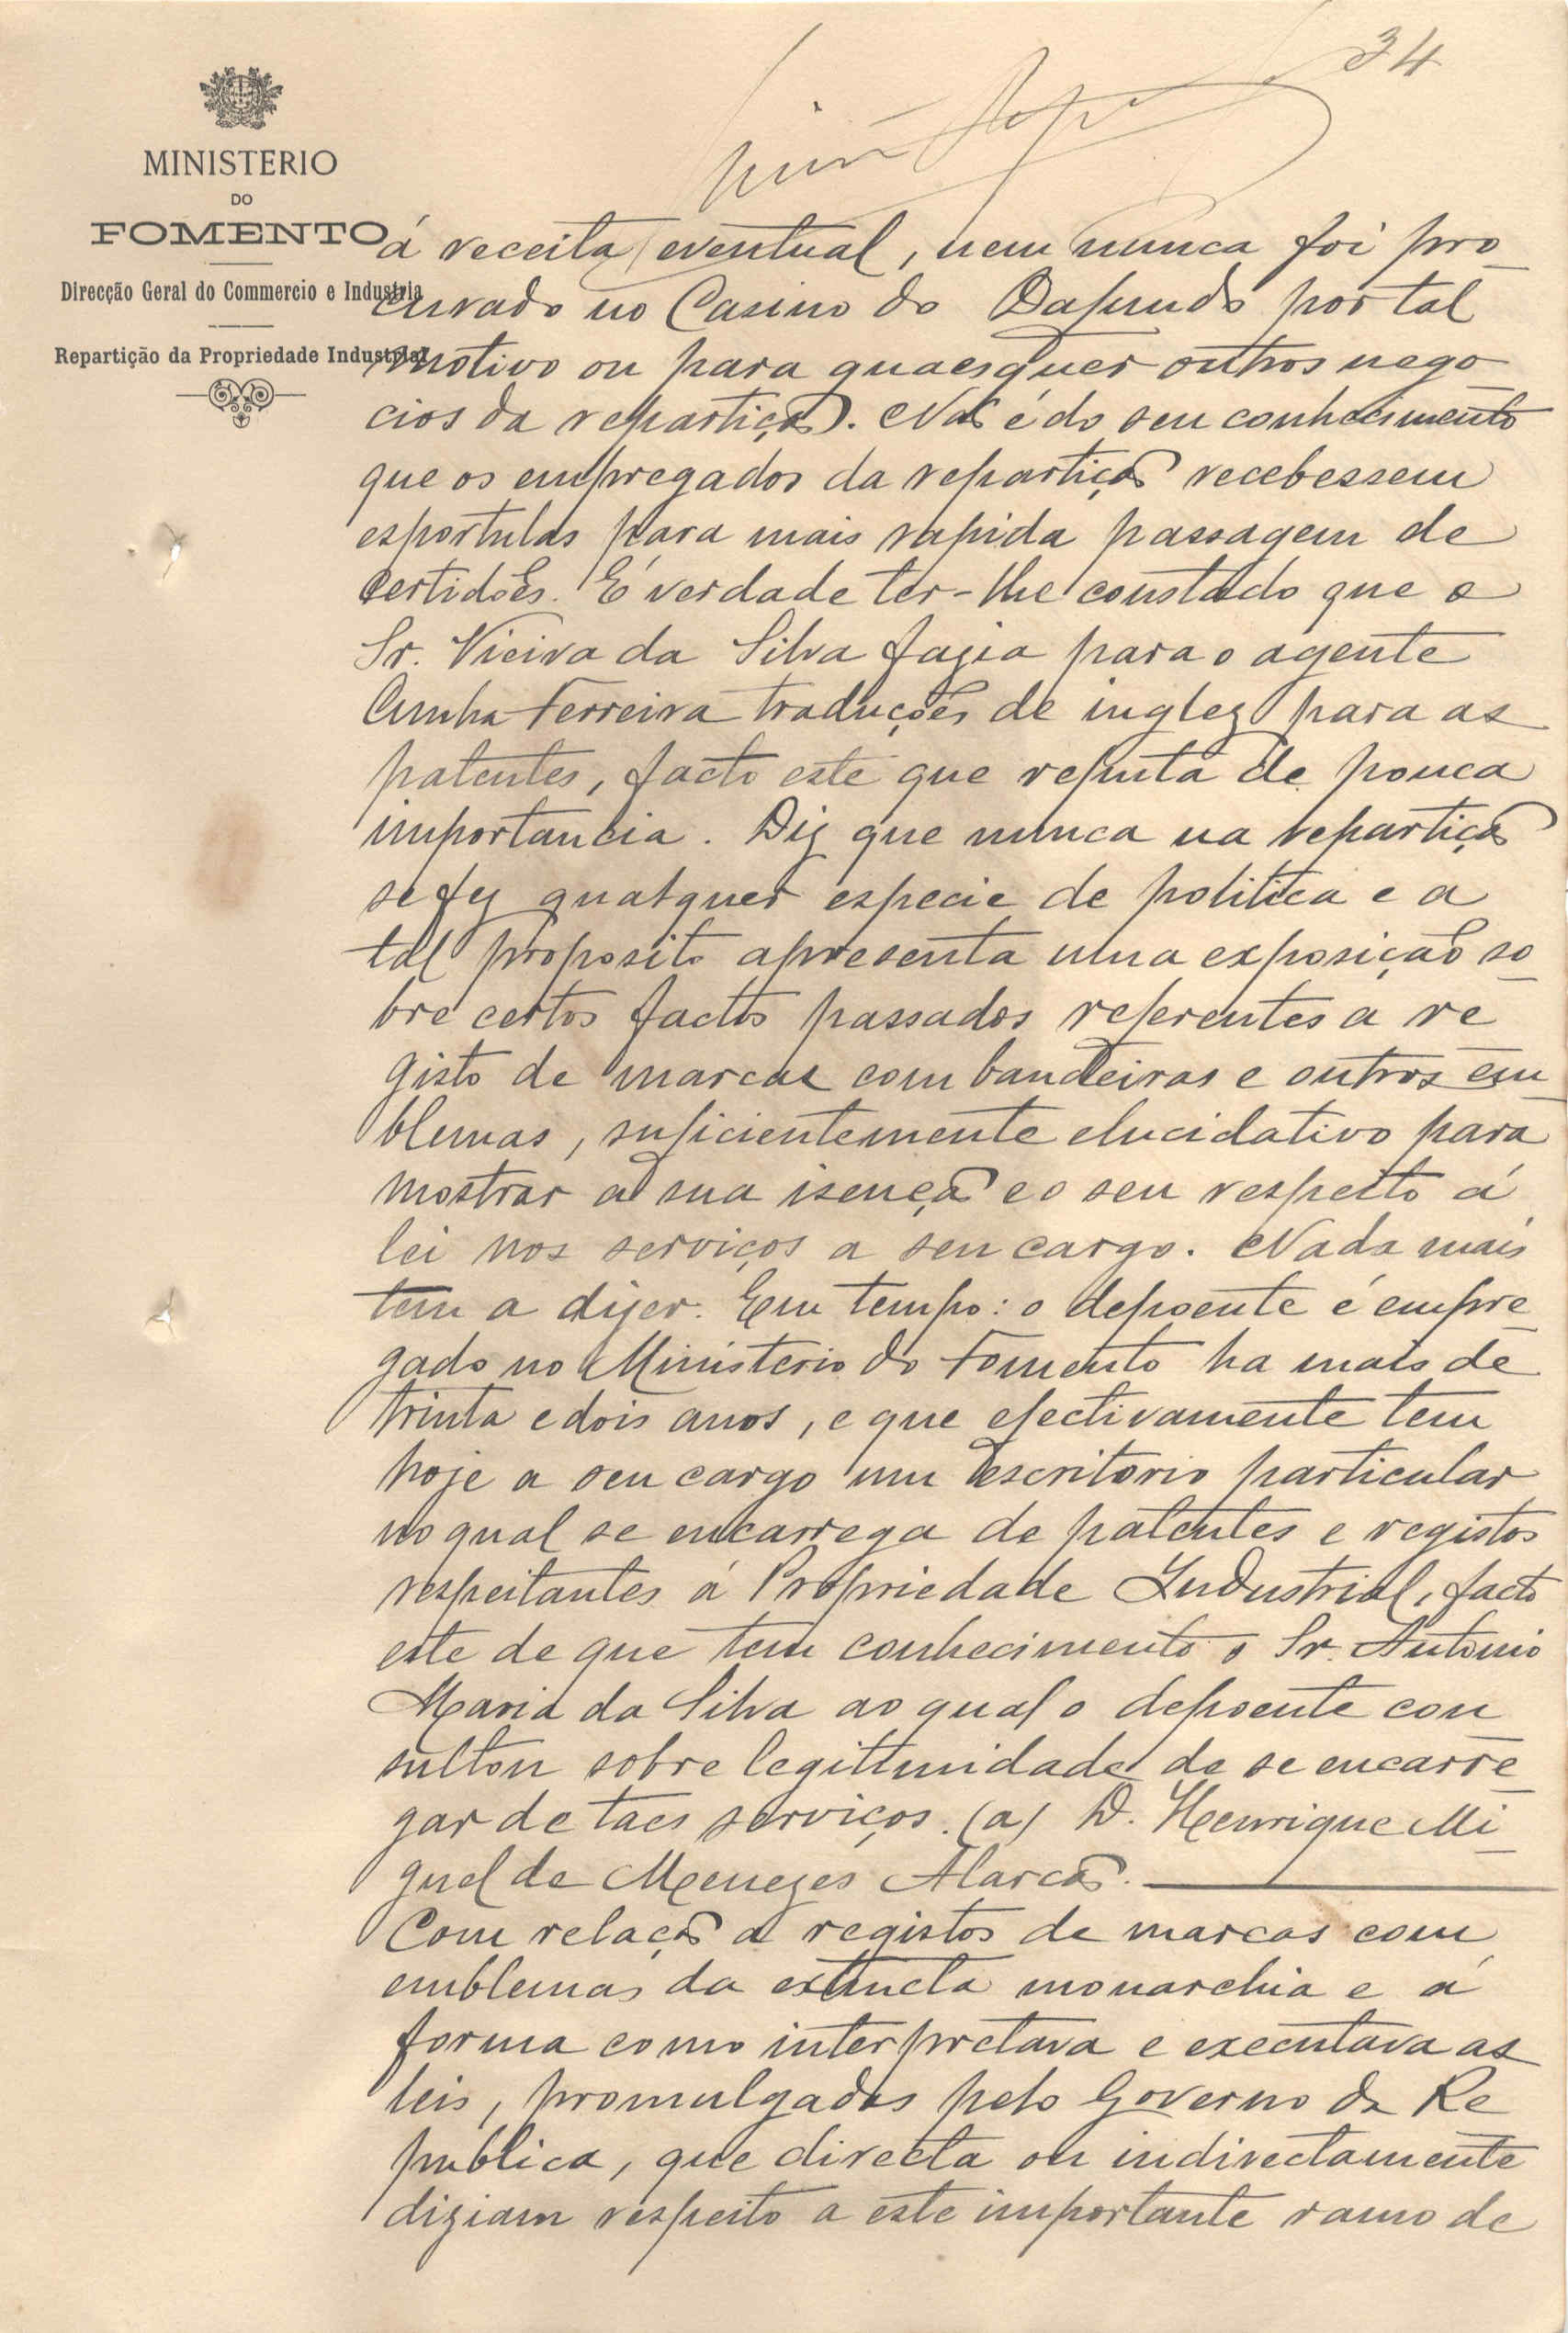 34
MINISTERIO
DO
FOMENTO
Direcção Geral do Commercio e Industria
Repartição da Propriedade Industrial
á receita eventual, nem nunca foi pro
curado no Casino do Dafundo por tal
motivo ou para quaesquer outros nego
cios da repartição. Não é do seu conhecimento
que os empregados da repartição recebessem
esportulas para mais rapida passagem de
certidões. É verdade ter-lhe constado que o
Sr. Vieira da Silva fazia para o agente
Cunha Ferreira traducções de inglez para as
patentes, facto este que reputa de pouca
importancia. Diz que nunca na repartição
se fez qualquer especie de politica e a
tal proposito apresenta uma exposição so
bre certos factos passados referentes a re
gisto de marcas com bandeiras e outros em
blemas, suficientemente elucidativo para
mostrar a sua isenção e o seu respeito á
lei nos serviços a seu cargo. Nada mais
tem a dizer. Em tempo: o depoente é empre
gado no Ministerio do Fomento ha mais de
trinta e dois anos, e que efectivamente tem
hoje a seu cargo um escritorio particular
no qual se encarrega de patentes e registos
respeitantes á Propriedade Industrial, facto
este de que tem conhecimento o Sr. Antonio
Maria da Silva ao qual o depoente con
sultou sobre legitimidade de se encarre
gar de taes serviços. (a) D. Henrique Mi
guel de Menezes Alarcão.
Com relação a registos de marcas com
emblemas da extincta monarchia e á
forma como interpretava e executava as
leis, promulgadas pelo Governo da Re
publica, que directa ou indirectamente
diziam respeito a este importante ramo de